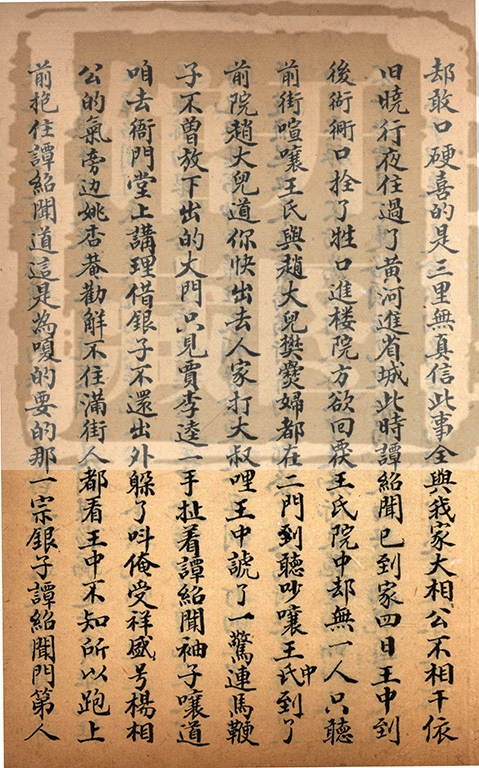 却敢口硬喜的是三里無真信此事全與我家大相公不相干依
旧曉行夜住過了黃河進省城此時譚紹聞已到家四日王中到
後衚衕口拴了牲口進楼院方欲回覆王氏院中却無一人只聽
前街喧嚷王氏與趙大兒樊爨婦都在二門到聽吵嚷王氏中到了
前院趙大兒道你快出去人家打大叔哩王中諕了一驚連馬鞭
子不曾放下出的大門只見賈李逵一手扯着譚紹聞袖子嚷道
咱去衙門堂上講理借銀子不還出外躲了呌俺受祥盛号楊相
公的氣旁边姚杏菴勸解不住滿街人都看王中不知所以跑上
前抱住譚紹聞道這是為嗄的要的那一宗銀子譚紹聞門第人